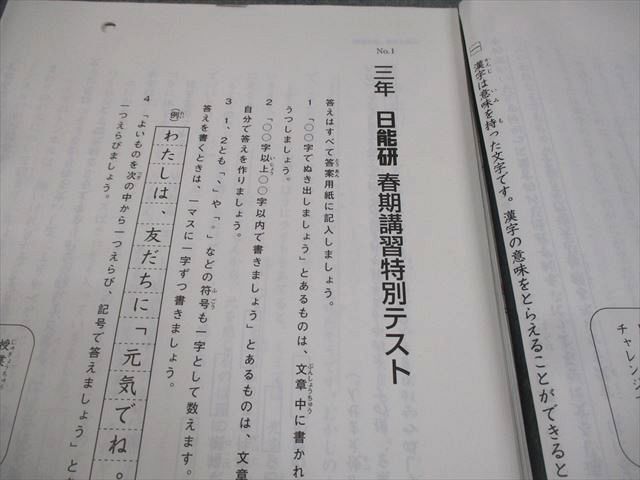 (一) 漢字は意味を持った文字です。漢字の意味をとらえることができると
チャレンジ
No.1
三年 日能研 春期講習特別テスト
答えはすべて答案用紙に記入しましょう。
1 「○○字でぬき出しましょう」とあるものは、文章中に書かれ
うつしましょう。
2 「○○字以上○○字以内で書きましょう」とあるものは、文章
自分で答えを作りましょう。
3 1、2とも「、」や「。」などの符号も一字として数えます。
答えを書くときは、一マスに一字ずつ書きましょう。
(例) わたしは、友だちに「元気でね。
4 「よいものを次の中から一つえらび、記号で答えましょう」と
一つえらびましょう。
授業